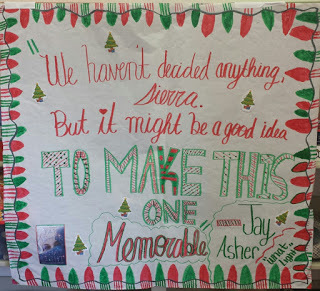 "We haven't decided anything,
Sierra.
But it might be a good idea
TO MAKE THIS
ONE
Memorable"
Jay
Asher
"What
Light"